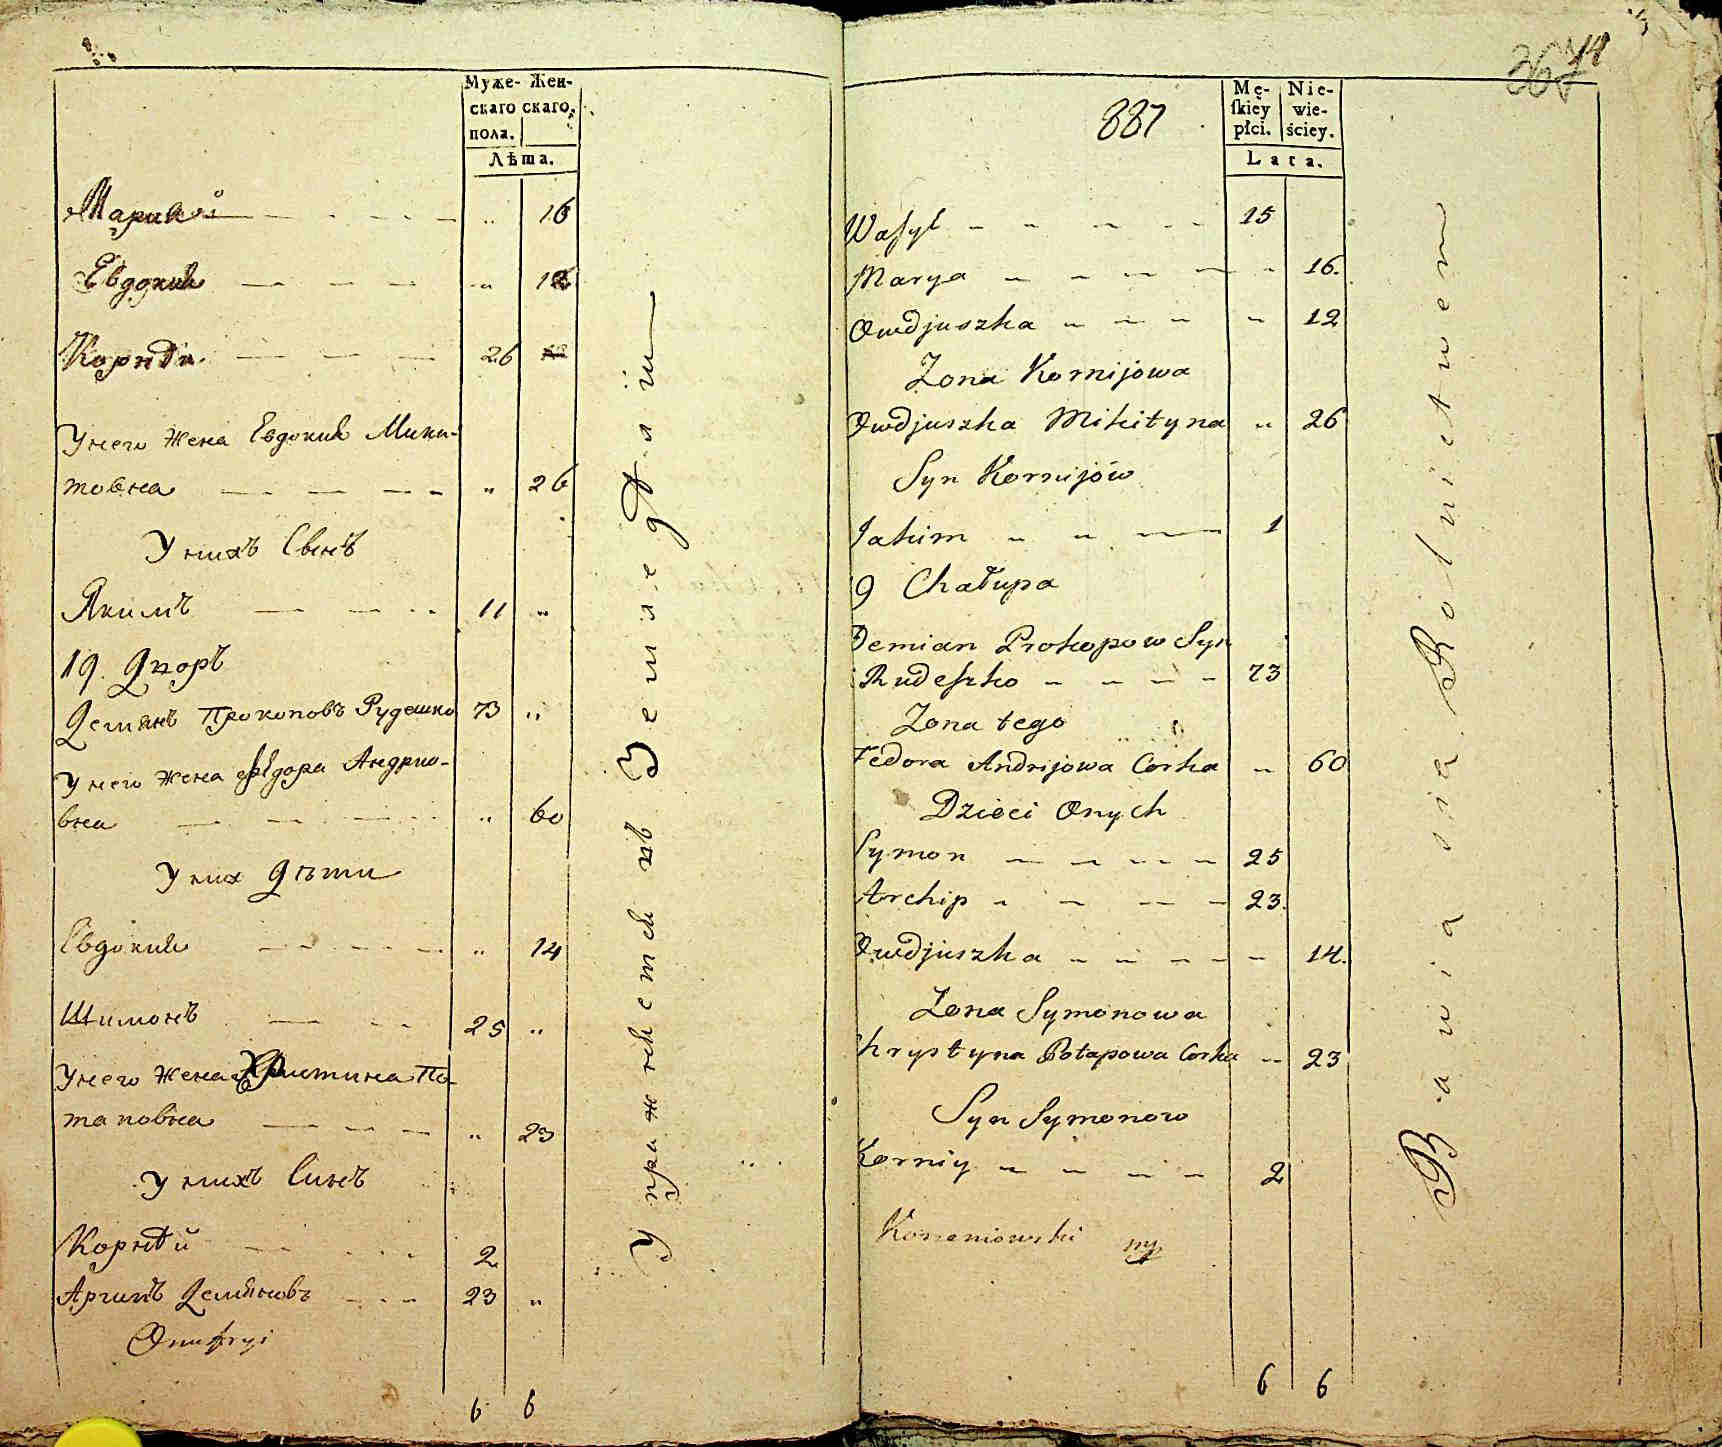 Муже- Жен-
скаго скаго,
пола.
Лѣта.
Марія „ 16
Евдокия „ 12
Корнѣй 26
Унего жена Евдокия Мики-
товна „ 26
Унихъ Сынъ
Якимъ 11 „
19. Дворъ
Демянъ Прокоповъ Рудешко 73 „
Унего жена Федора Андрио-
вна „ 60
Уних Дѣти
Евдокия „ 14
Шимонъ 25 „
Унего жена Христина По-
таповна „ 23
Унихъ Синъ
Корнѣй 2
Архипъ Демяновъ 23 „
Onufryi
6 6
Упражняется въ Земледѣлии
14
367
887
Mę- Nie-
skiey wie-
płci. ściey.
Lata.
Wasyl 15
Marya „ 16.
Owdjuszka „ 12
Zona Kornijowa
Owdjuszka Mikityna „ 26
Syn Kornijów
Jakim 1
9 Chałupa
Demian Prokopow Syn
Rudeszko 73
Zona tego
Fedora Andrijowa Corka „ 60
Dzieci Onych
Symon 25
Archip 23.
Owdjuszka „ 14.
Zona Symonowa
Chrystyna Potapowa Corka „ 23
Syn Symonow
Korniy 2
Kononiowski
6 6
Bawia sie Rolnictwem